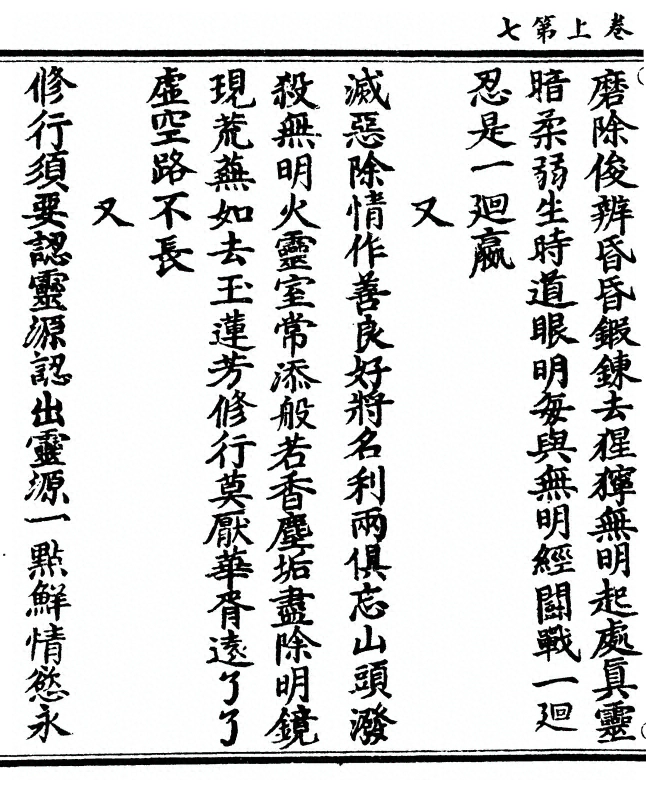 卷上第七
磨除俊辨昏昏鍛鍊去猩獰無明起處眞靈
暗柔弱生時道眼明每與無明經鬬戰一廻
忍是一廻贏
又
滅惡除情作善良好將名利兩俱忘山頭潑
殺無明火靈室常添般若香塵垢盡除明鏡
現荒蕪如去玉蓮芳修行莫厭華胥遠了了
虛空路不長
又
修行須要認靈源認出靈源一點鮮情慾永